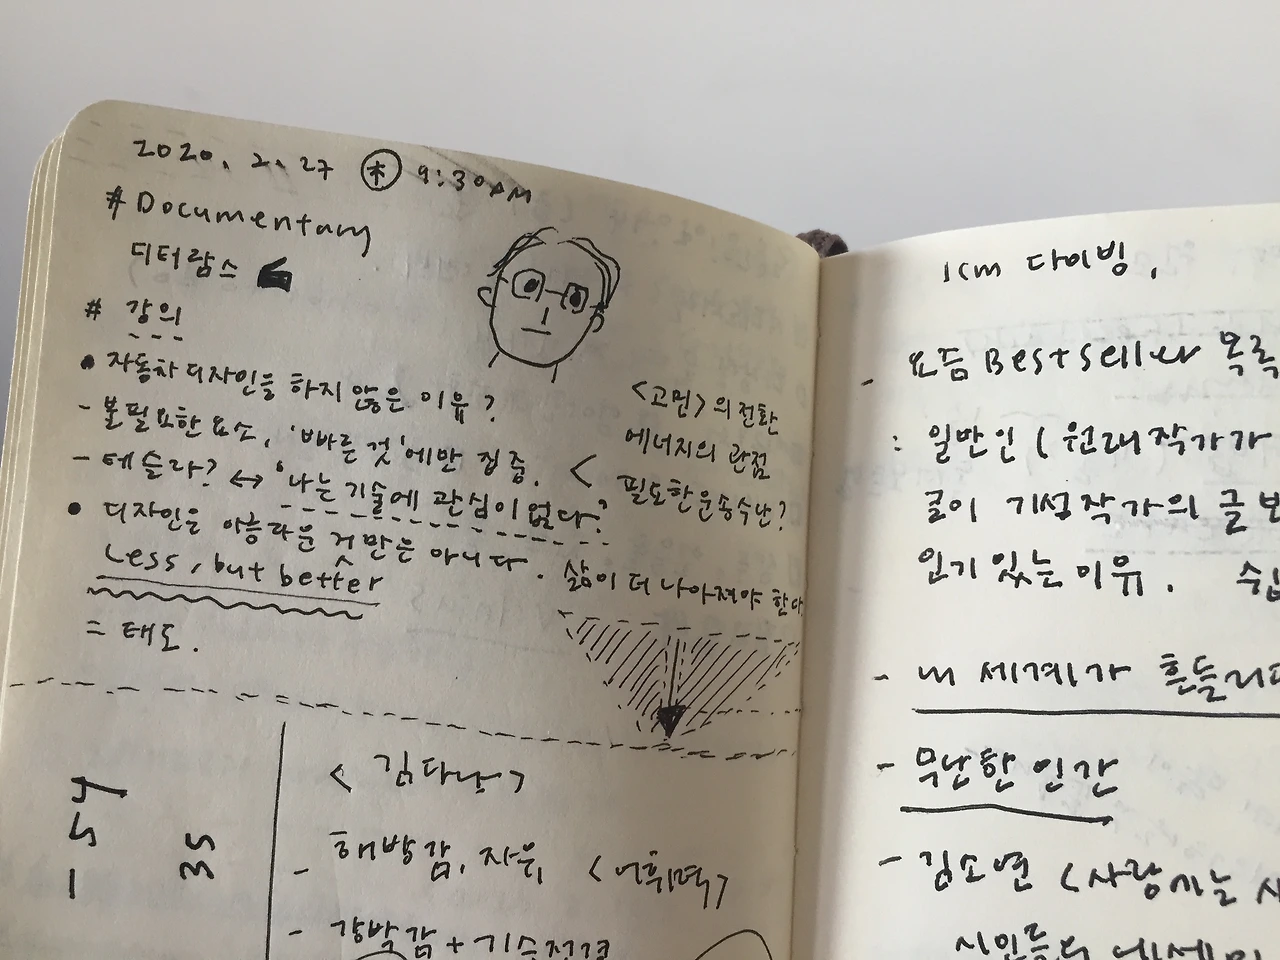 2020. 2. 27 木 9:30AM
# Documentary
디터람스
# 강의
• 자동차 디자인을 하지 않은 이유?
- 불필요한 요소, '빠른 것'에만 집중.
- 테슬라? ↔ '나는 기술에 관심이 없다?'
<고민>의 전환
에너지의 관점
< 필요한 운송수단?
• 디자인은 아름다운 것만은 아니다. 삶이 더 나아져야 한다
Less, but better
= 태도.
35
해방감, 자유, <어휘력>
- 강박감 +
1cm 다이빙,
- 요즘 Bestseller 목록
: 일반인 (원래 작가가
글이 기성작가의 글보
인기 있는 이유.
- 내 세계가 흔들리
- 무난한 인간
- 김소연 <사랑에는
시인들의 에세이